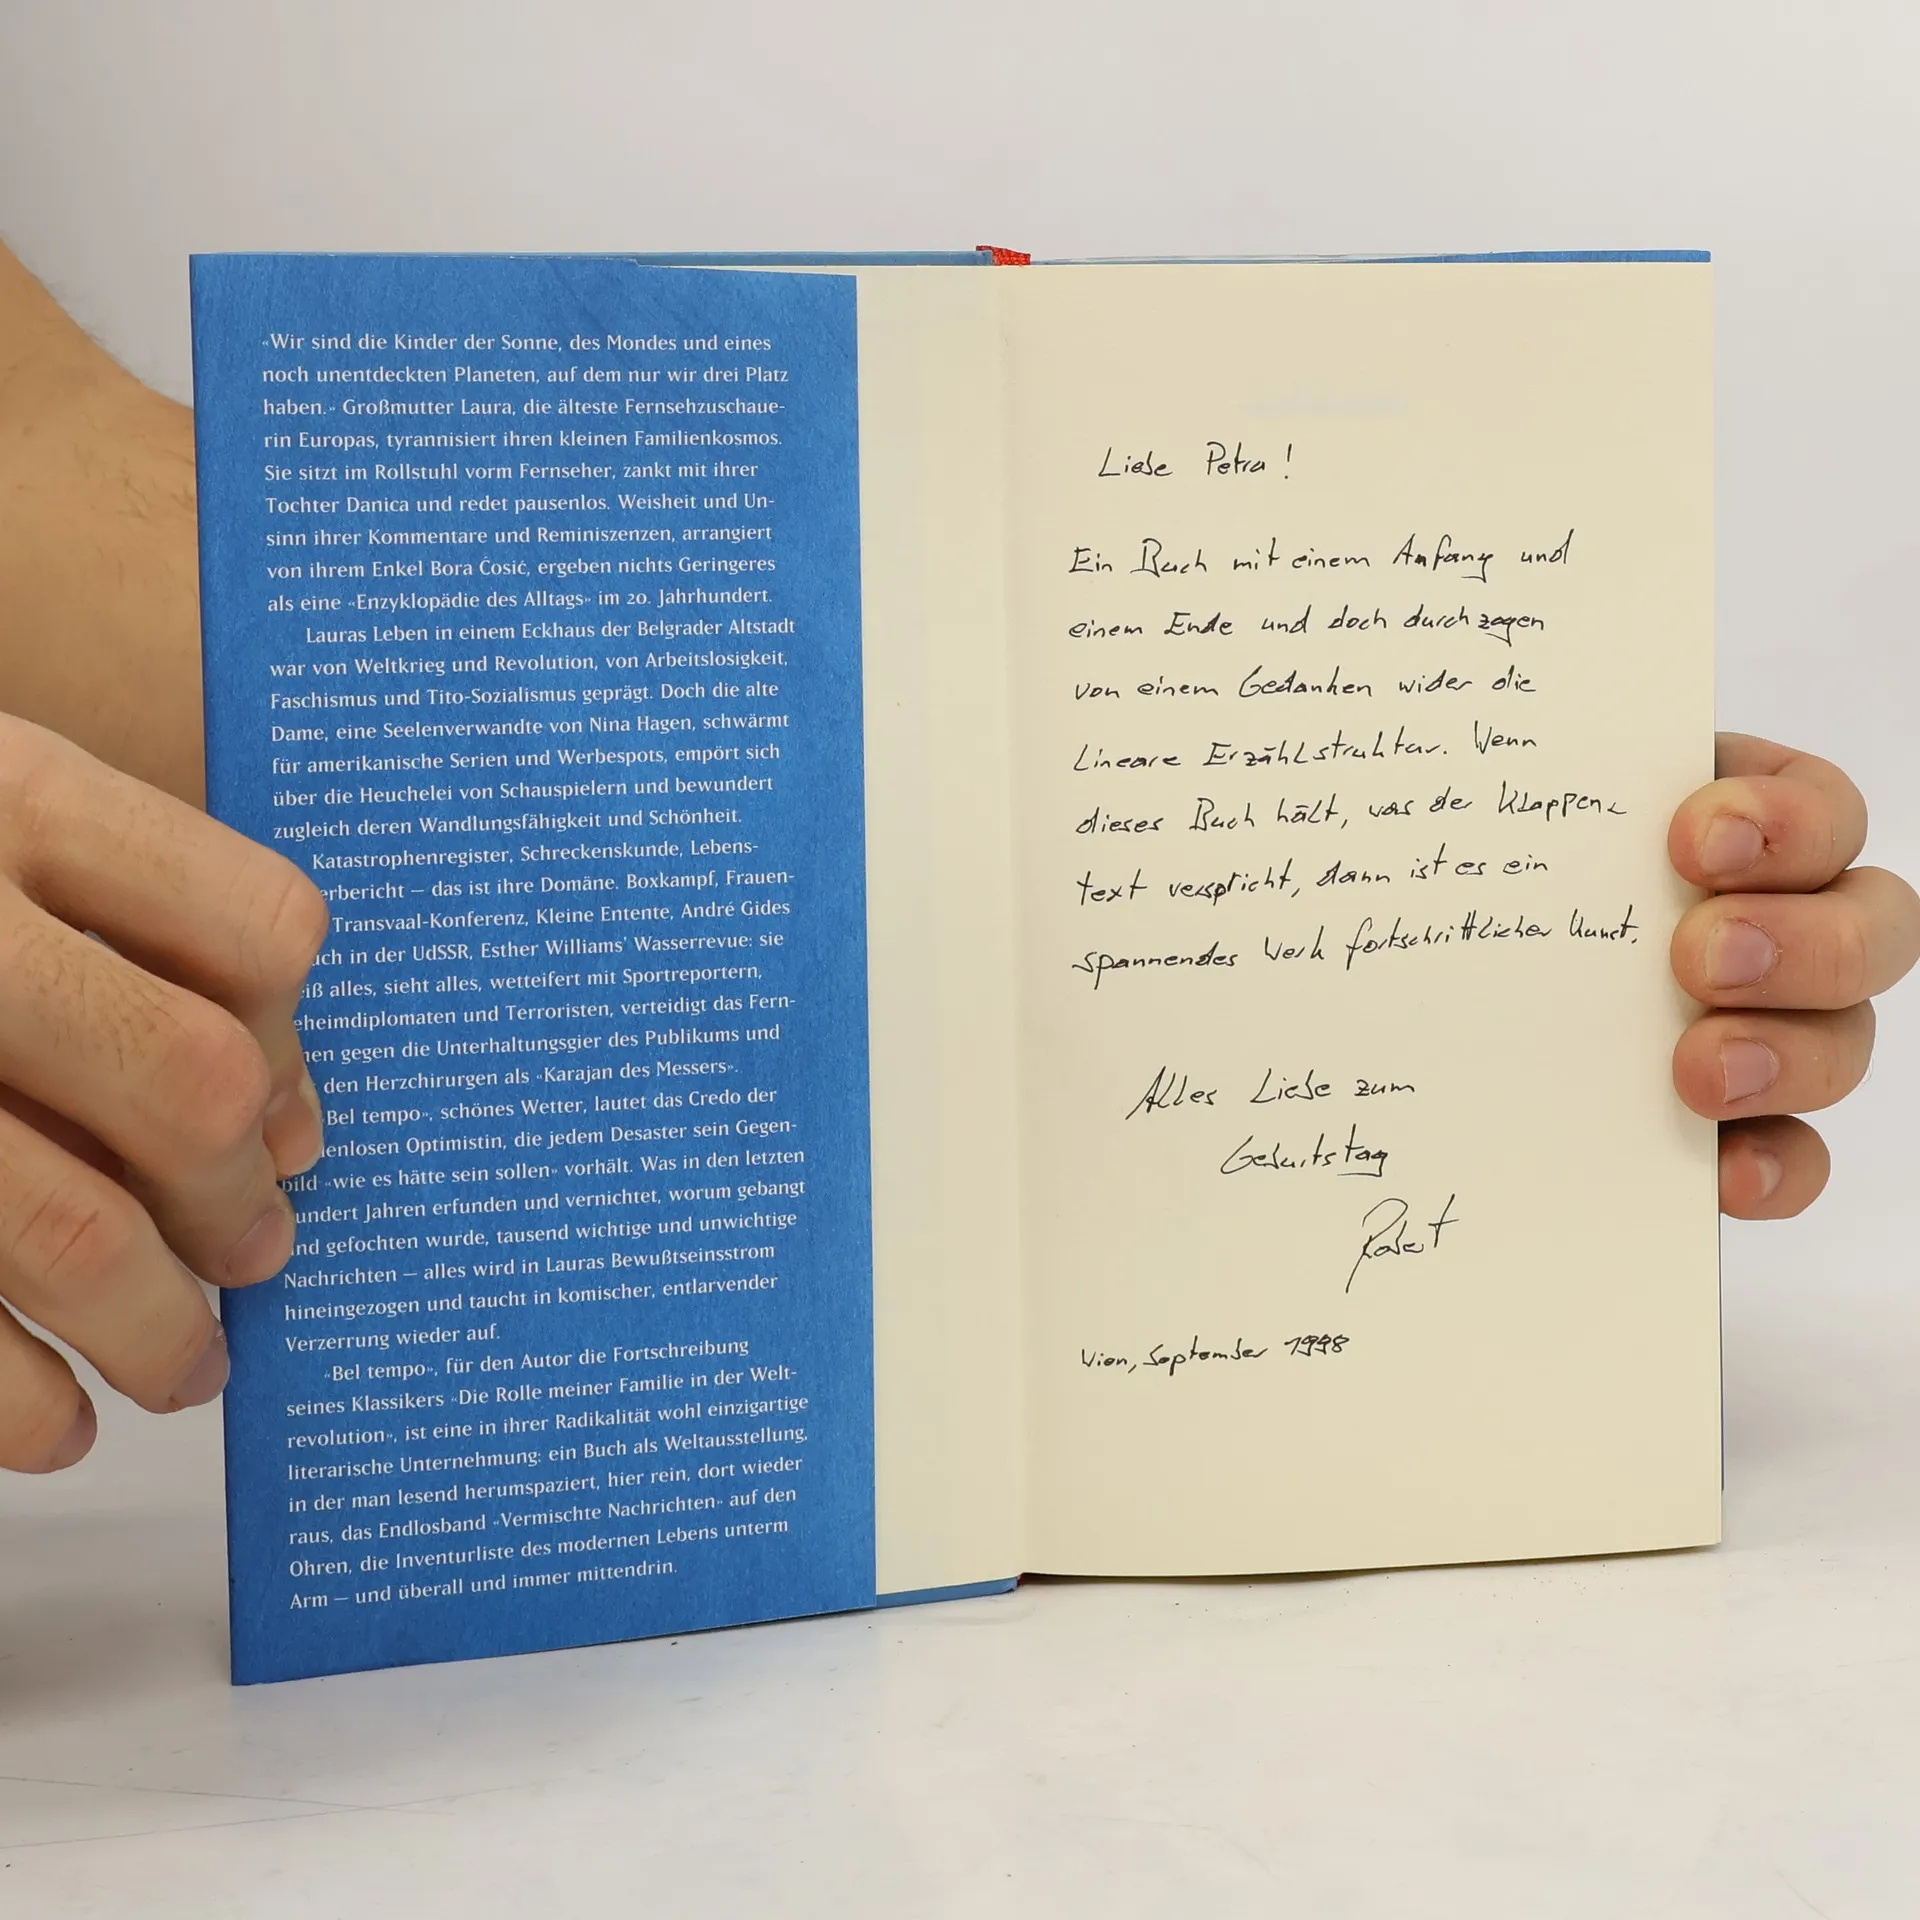 «Wir sind die Kinder der Sonne, des Mondes und eines
noch unentdeckten Planeten, auf dem nur wir drei Platz
haben.» Großmutter Laura, die älteste Fernsehzuschaue-
rin Europas, tyrannisiert ihren kleinen Familienkosmos.
Sie sitzt im Rollstuhl vorm Fernseher, zankt mit ihrer
Tochter Danica und redet pausenlos. Weisheit und Un-
sinn ihrer Kommentare und Reminiszenzen, arrangiert
von ihrem Enkel Bora Ćosić, ergeben nichts Geringeres
als eine «Enzyklopädie des Alltags» im 20. Jahrhundert.
Lauras Leben in einem Eckhaus der Belgrader Altstadt
war von Weltkrieg und Revolution, von Arbeitslosigkeit,
Faschismus und Tito-Sozialismus geprägt. Doch die alte
Dame, eine Seelenverwandte von Nina Hagen, schwärmt
für amerikanische Serien und Werbespots, empört sich
über die Heuchelei von Schauspielern und bewundert
zugleich deren Wandlungsfähigkeit und Schönheit.
Katastrophenregister, Schreckenskunde, Lebens-
erbericht – das ist ihre Domäne. Boxkampf, Frauen-
Transvaal-Konferenz, Kleine Entente, André Gides
uch in der UdSSR, Esther Williams' Wasserrevue: sie
iß alles, sieht alles, wetteifert mit Sportreportern,
eheimdiplomaten und Terroristen, verteidigt das Fern-
hen gegen die Unterhaltungsgier des Publikums und
den Herzchirurgen als «Karajan des Messers».
Bel tempo», schönes Wetter, lautet das Credo der
enlosen Optimistin, die jedem Desaster sein Gegen-
bild «wie es hätte sein sollen» vorhält. Was in den letzten
undert Jahren erfunden und vernichtet, worum gebangt
und gefochten wurde, tausend wichtige und unwichtige
Nachrichten – alles wird in Lauras Bewußtseinsstrom
hineingezogen und taucht in komischer, entlarvender
Verzerrung wieder auf.
«Bel tempo», für den Autor die Fortschreibung
seines Klassikers «Die Rolle meiner Familie in der Welt-
revolution», ist eine in ihrer Radikalität wohl einzigartige
literarische Unternehmung: ein Buch als Weltausstellung,
in der man lesend herumspaziert, hier rein, dort wieder
raus, das Endlosband «Vermischte Nachrichten» auf den
Ohren, die Inventurliste des modernen Lebens unterm
Arm – und überall und immer mittendrin.
Liebe Petra!
Ein Buch mit einem Anfang und
einem Ende und doch durchzogen
von einem Gedanken wider die
lineare Erzählstruktur. Wenn
dieses Buch hält, was der Klappen-
text verspricht, dann ist es ein
spannendes Werk fortschrittlicher Kunst.
Alles Liebe zum
Geburtstag
Robert
Wien, September 1998